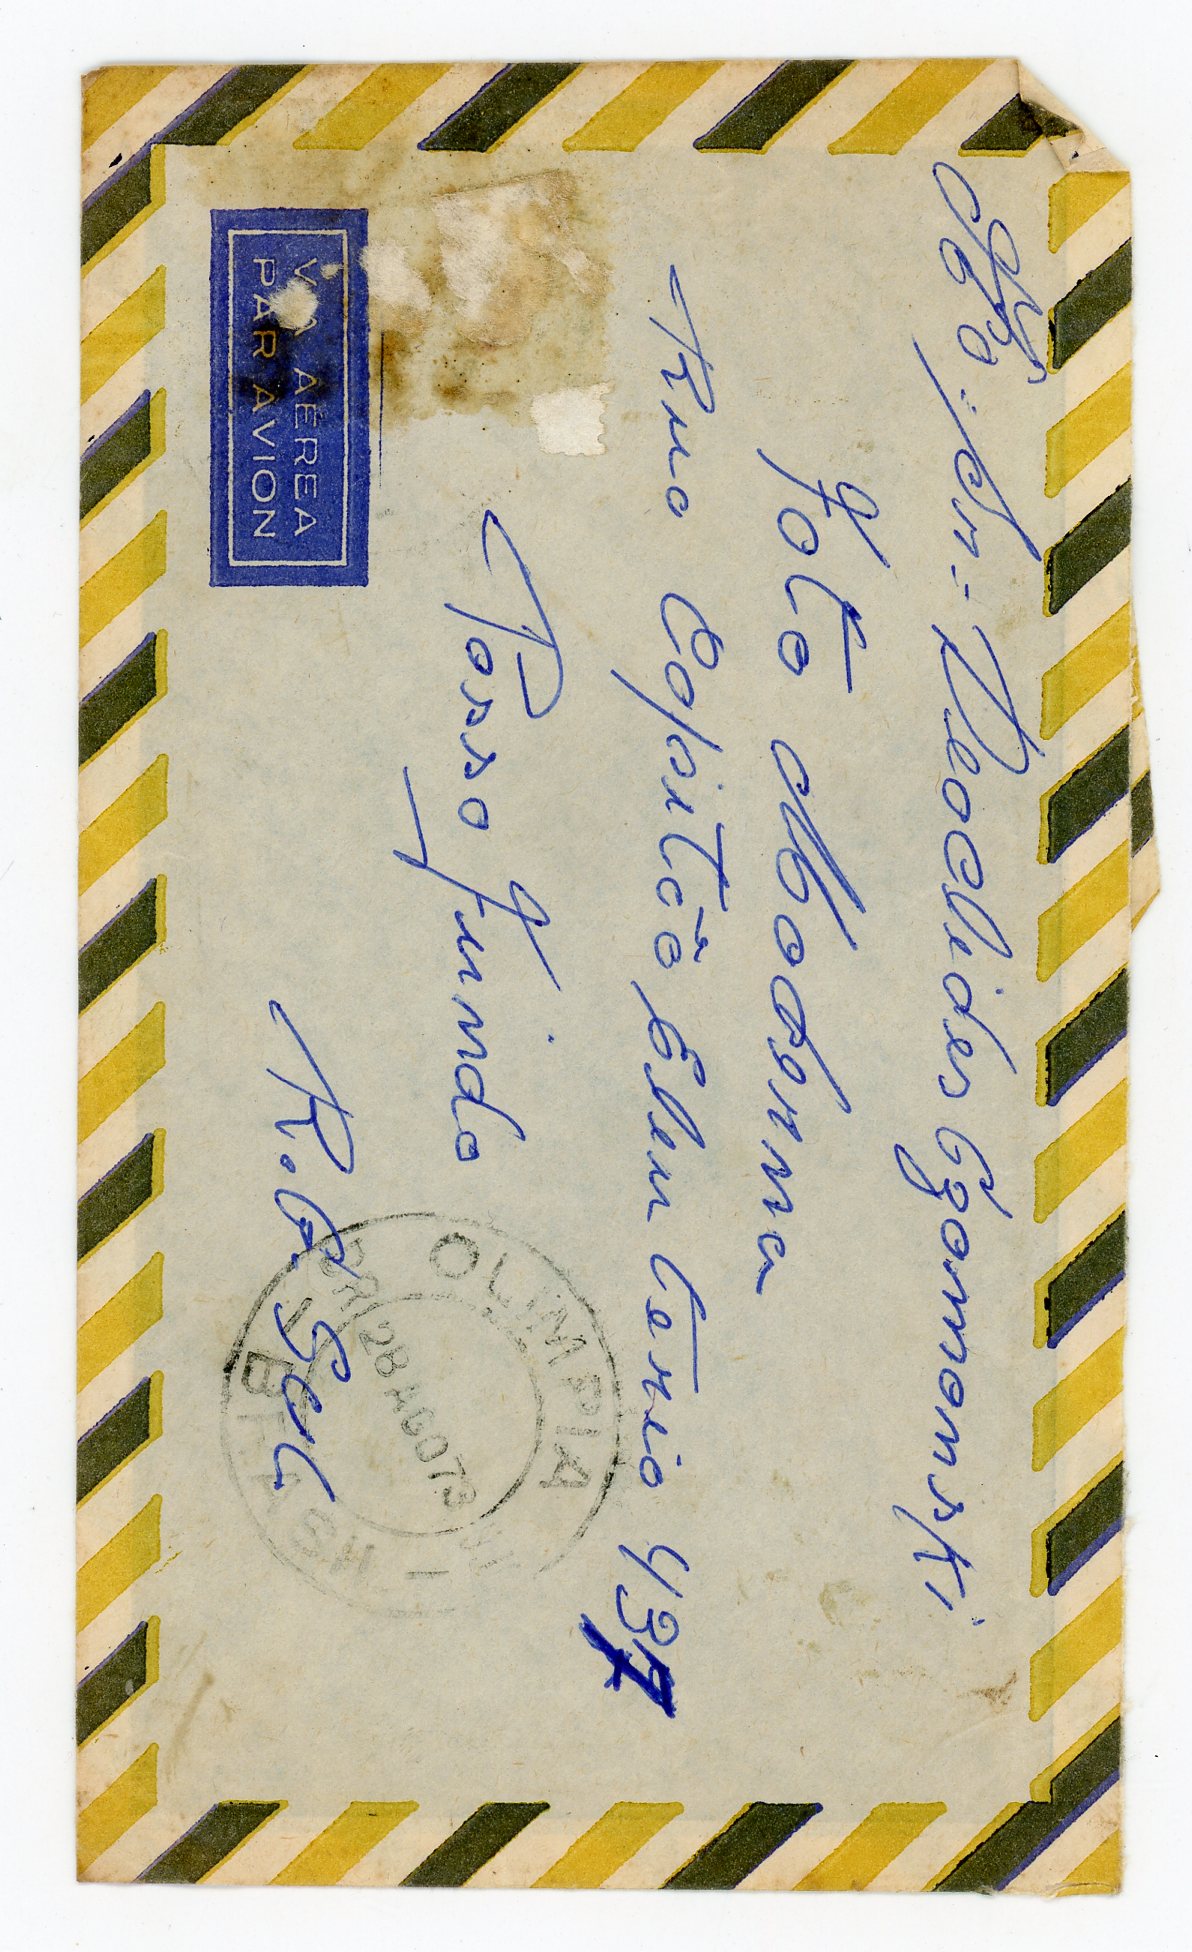 VIA AÉREA
PAR AVION
Sr. Deoclides Czamanski
Foto Moderna
Rua Capitão Eleuterio 437
Passo Fundo
R. G. Sul
OLIMPIA
28 AGO 73
BRASIL